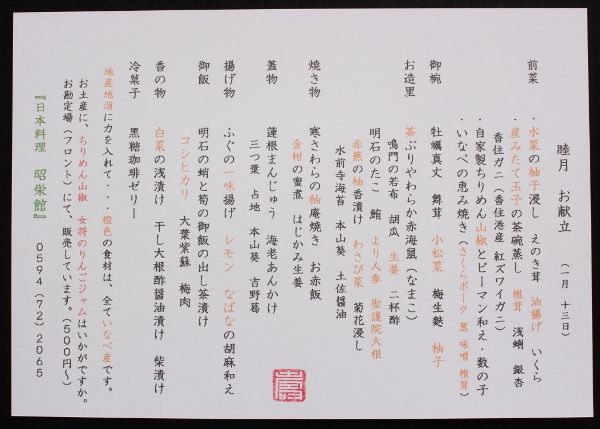 睦月 お献立 (一月 十三日)
前菜 ・水菜の柚子浸し えのき茸 油揚げ いくら
・産みたて玉子の茶碗蒸し 椎茸 浅蜊 銀杏
香住ガニ(香住港産 紅ズワイガニ)
・自家製ちりめん山椒とピーマン和え・数の子
・いなべの恵み焼き(さくらポーク 葱 味噌 椎茸)
御椀 牡蠣真丈 舞茸 小松菜 梅生麩 柚子
お造里 茶ぶりやわらか赤海鼠(なまこ)
鳴門の若布 胡瓜 生姜 二杯酢
明石のたこ 鮪 より人参 聖護院大根
赤蕪の柚香漬け わさび菜 菊花浸し
水前寺海苔 本山葵 土佐醤油
焼き物 寒さわらの柚庵焼き お赤飯
金柑の蜜煮 はじかみ生姜
蓋物 蓮根まんじゅう 海老あんかけ
三つ葉 占地 本山葵 吉野葛
揚げ物 ふぐの一味揚げ レモン なばなの胡麻和え
御飯 明石の蛸と筍の御飯の出し茶漬け
コシヒカリ 大葉紫蘇 梅肉
香の物 白菜の浅漬け 干し大根酢醤油漬け 柴漬け
冷菓子 黒糖珈琲ゼリー
地産地消に力を入れて・・・橙色の食材は、全ていなべ産です。
お土産に、ちりめん山椒 女将のりんごジャムはいかがですか。
お勘定場(フロント)にて、販売しています。(500円〜)
『日本料理 昭栄館』 0594(72)2065
寿